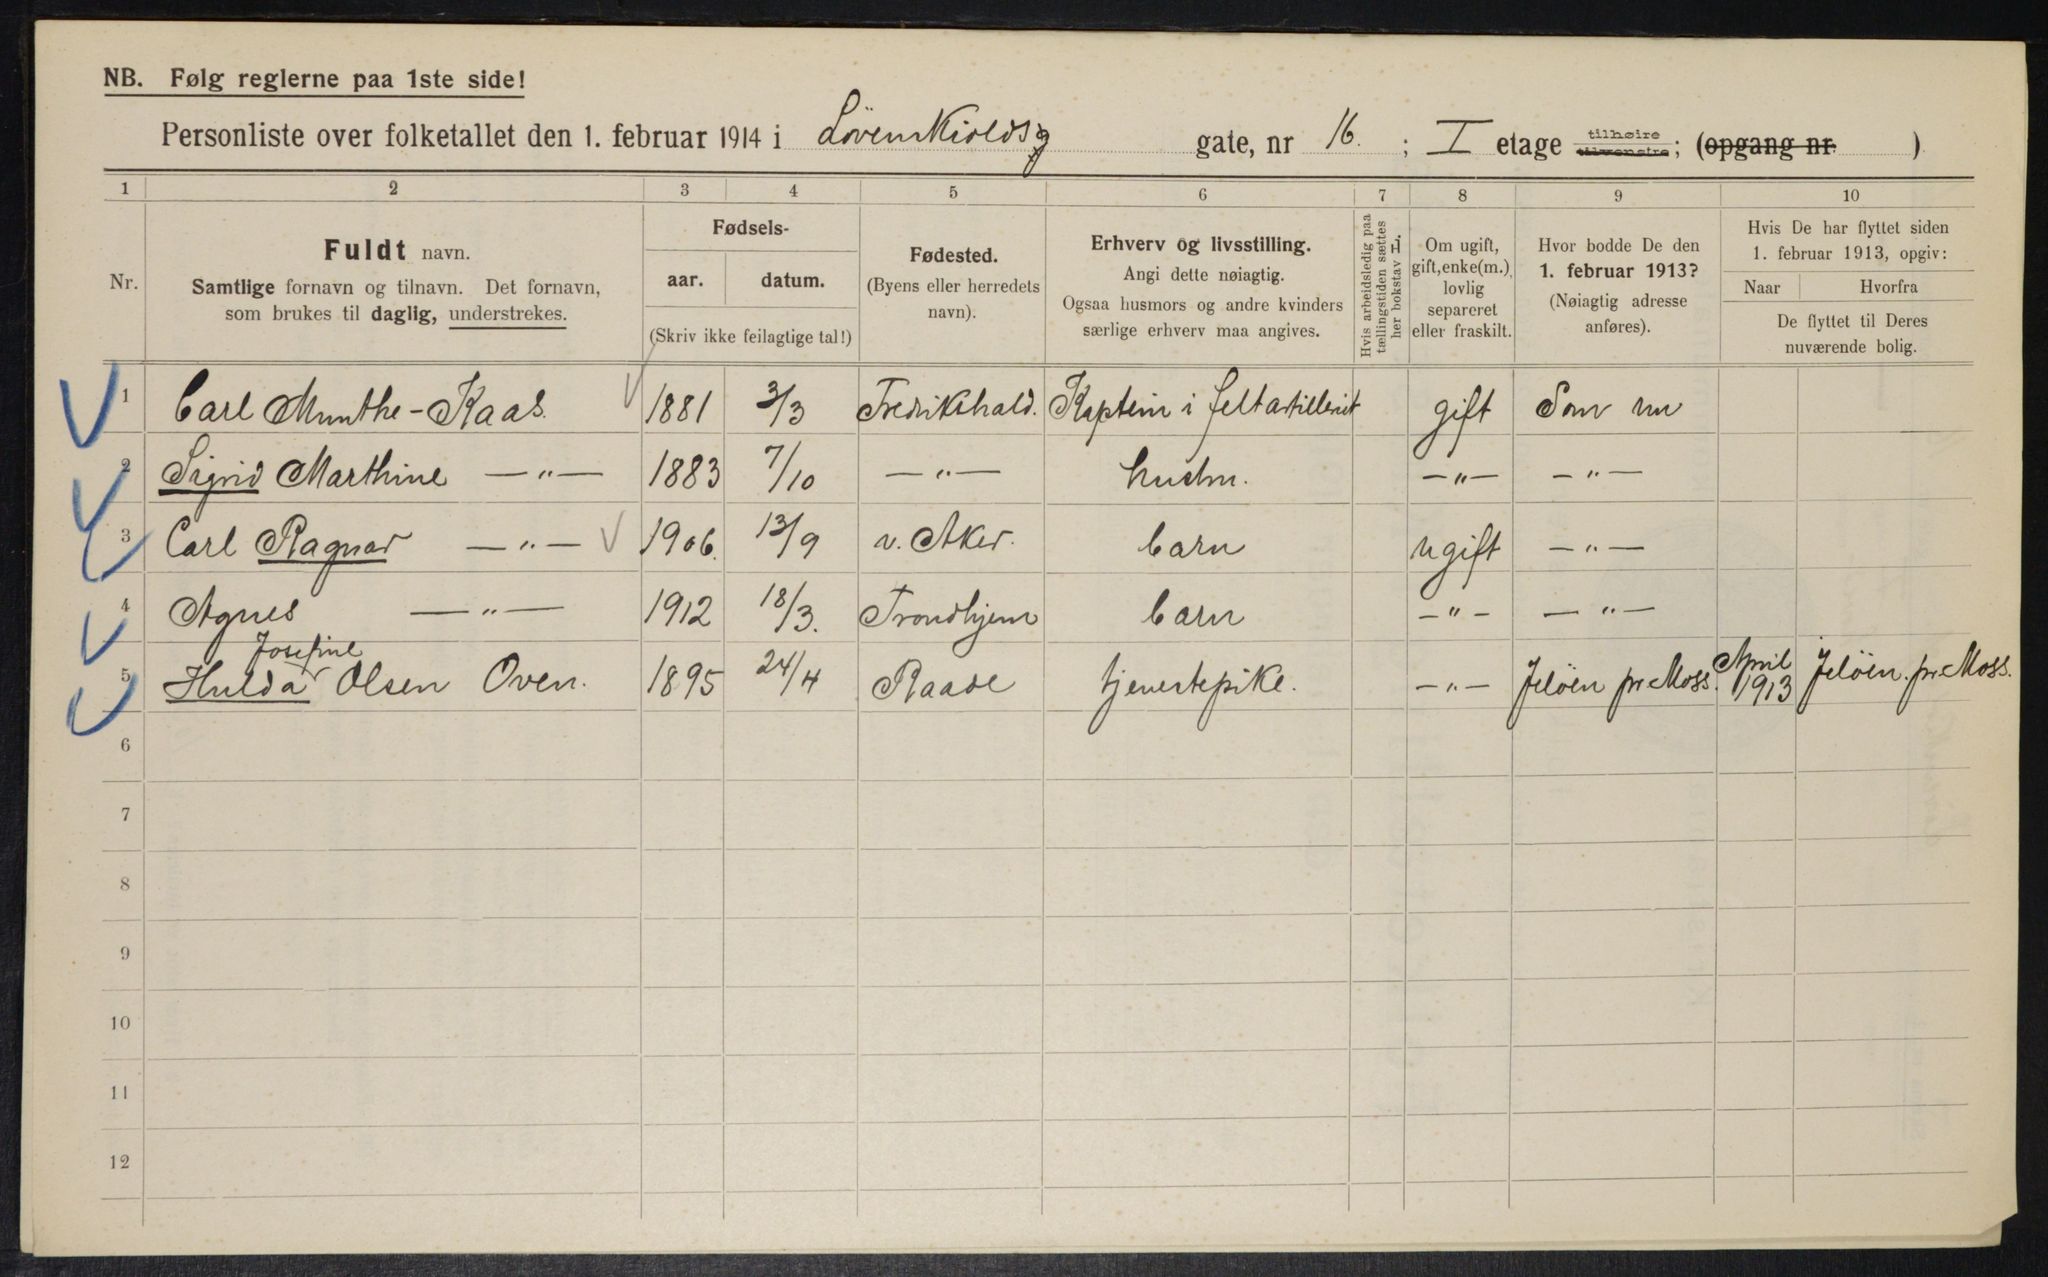 NB. Følg reglerne paa 1ste side!
Personliste over folketallet den 1. februar 1914 i Løvenskioldsg gate, nr 16. ; I etage tilhøire tilvenstre; (opgang nr. )
1 2 3 4 5 6 7 8 9 10
Nr.
Fuldt navn.
Samtlige fornavn og tilnavn. Det fornavn,
som brukes til daglig, understrekes.
Fødsels-
aar. datum.
(Skriv ikke feilagtige tal!)
Fødested.
(Byens eller herredets
navn).
Erhverv og livsstilling.
Angi dette nøiagtig.
Ogsaa husmors og andre kvinders
særlige erhverv maa angives.
Hvis arbeidsledig paa
tællingstiden sættes
her bokstav L.
Om ugift,
gift, enke(m.),
lovlig
separeret
eller fraskilt.
Hvor bodde De den
1. februar 1913?
(Nøiagtig adresse
anføres).
Hvis De har flyttet siden
1. februar 1913, opgiv:
Naar Hvorfra
De flyttet til Deres
nuværende bolig.
1 Carl Munthe-Kaas. 1881 3/3 Fredrikshald. Kaptein i feltartilleriet gift Som nu
2 Sigrid Marthine —"— 1883 7/10 —"— hustru. —"— —"—
3 Carl Ragnar —"— 1906. 13/9 v. Aker. barn ugift —"—
4 Agnes —"— 1912 18/3. Trondhjem barn —"— —"—
Josefine
5 Hulda Olsen Oven. 1895 24/4 Raade tjenestepike. —"— Jeløen pr. Moss. April 1913 Jeløen. pr. Moss.
6
7
8
9
10
11
12